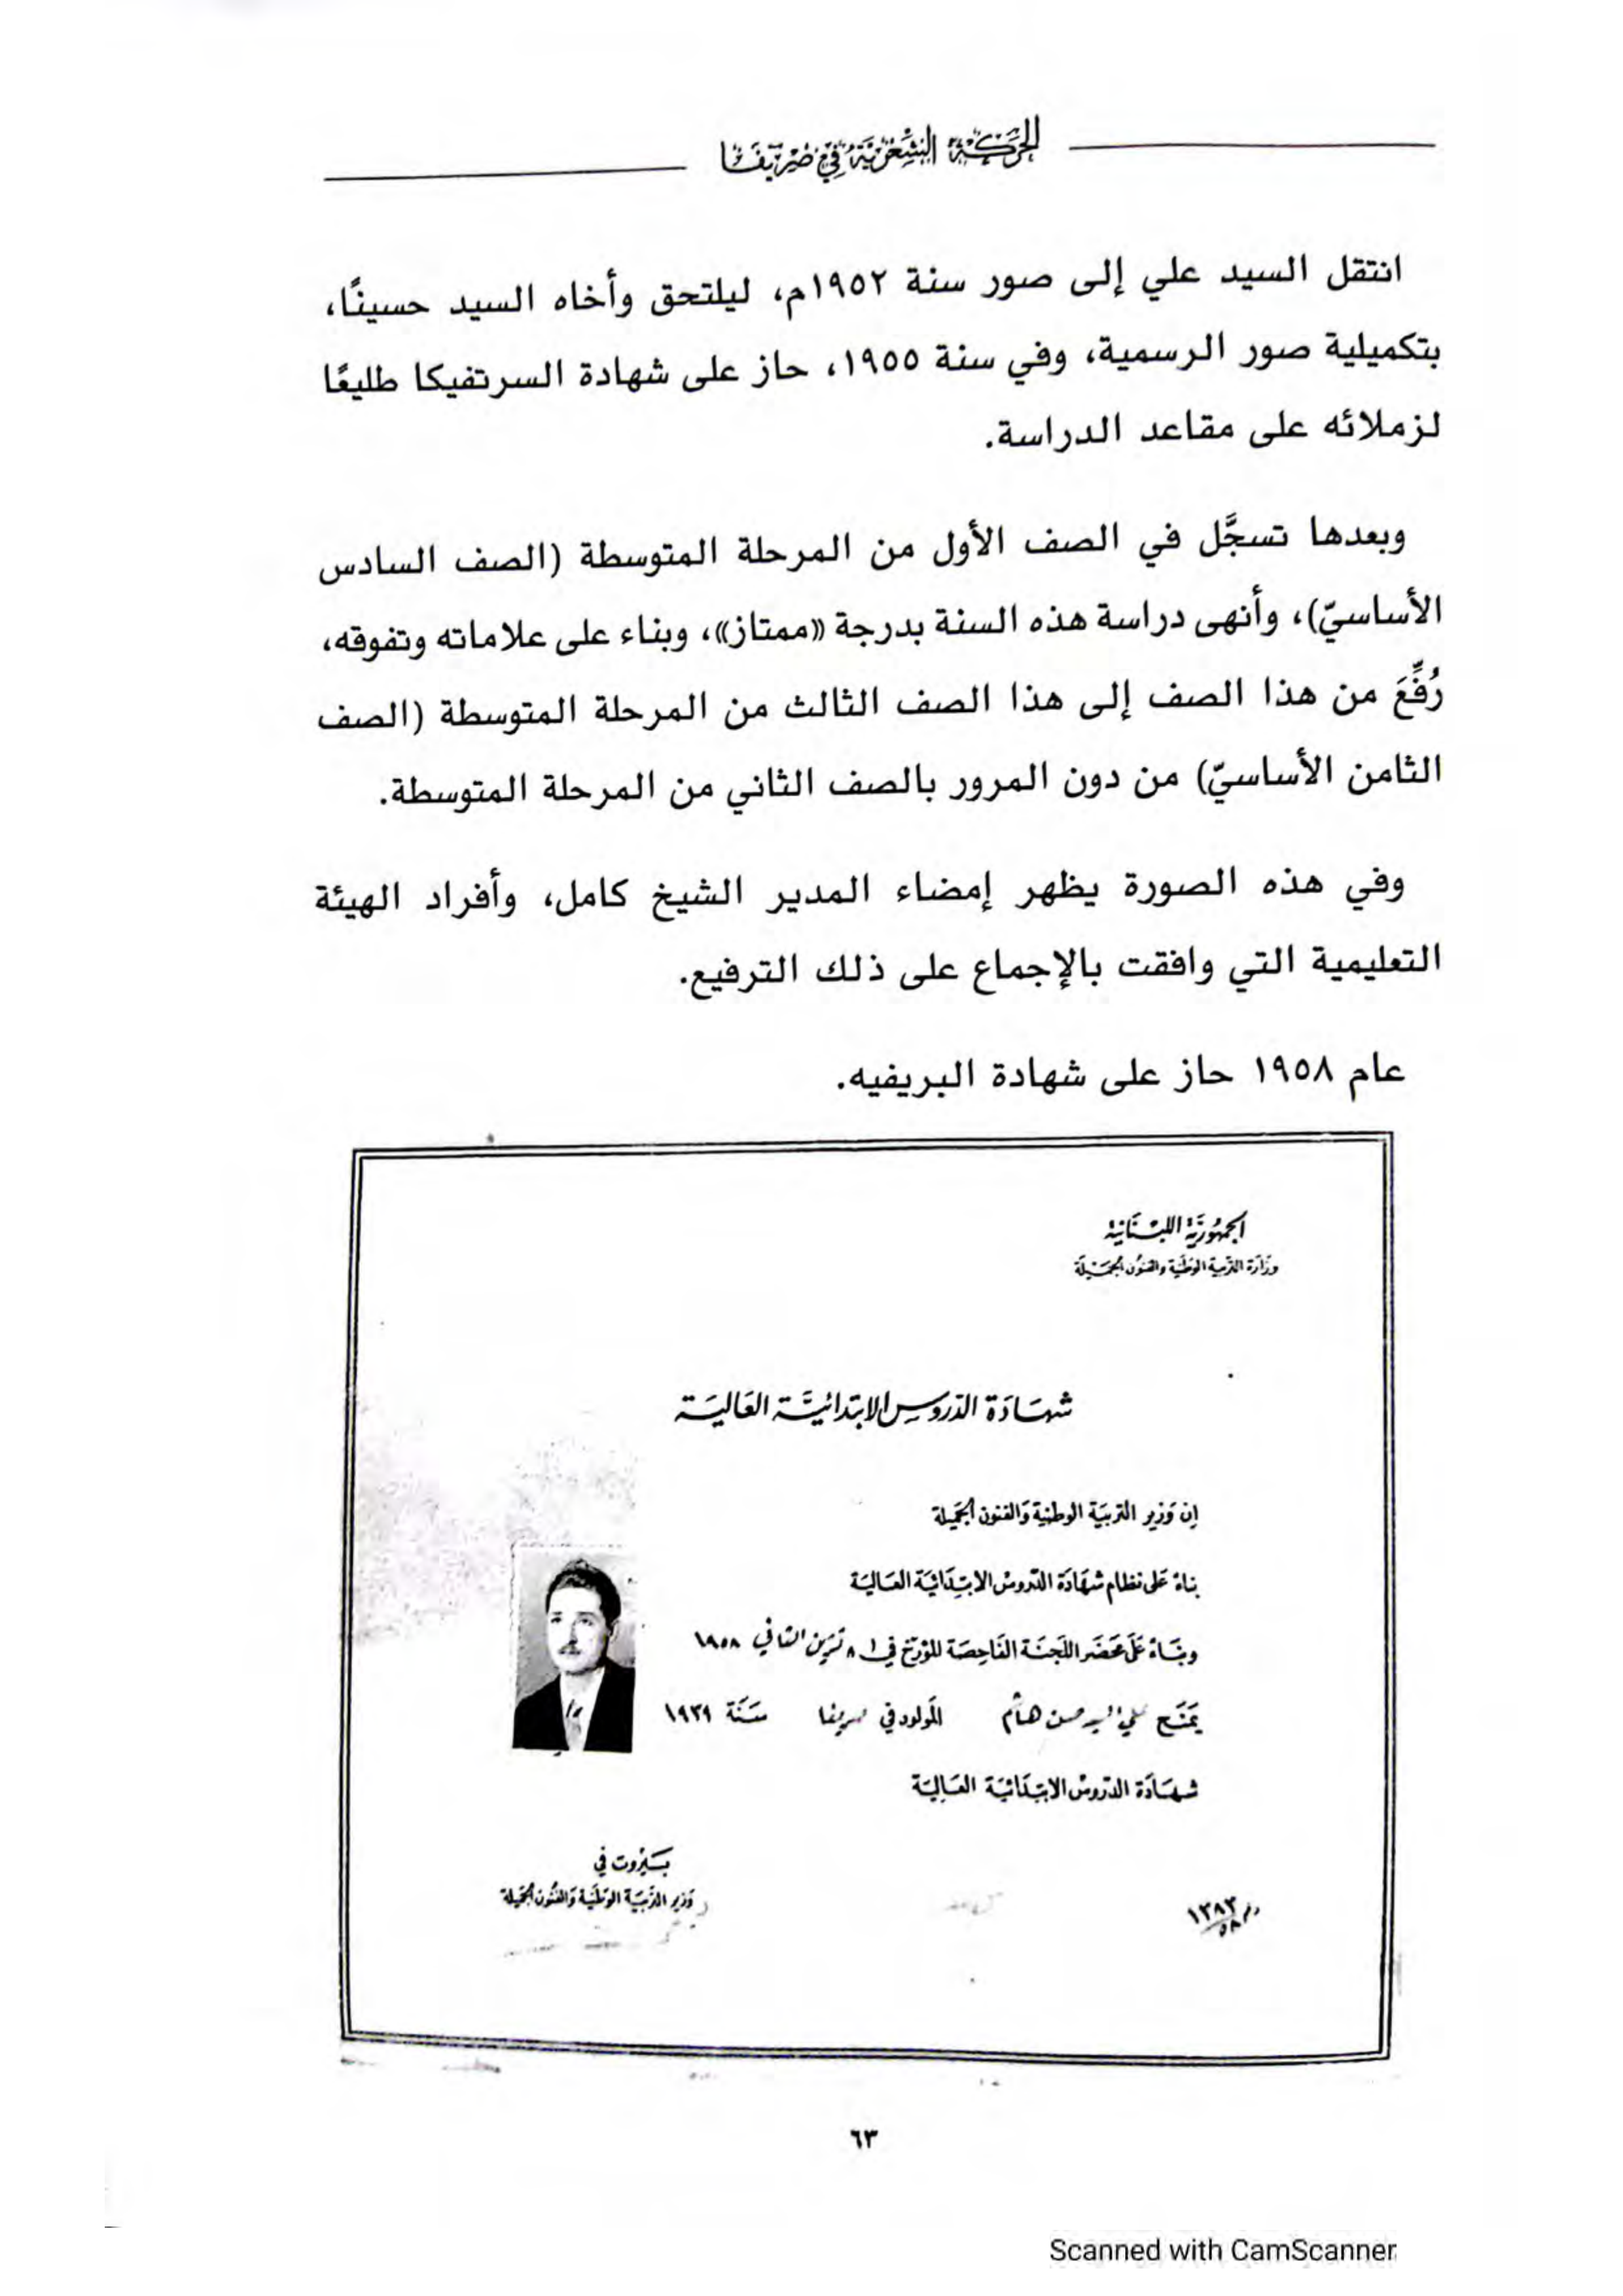 الحركة الشعرية في صريفا
انتقل السيد علي إلى صور سنة ١٩٥٢م، ليلتحق وأخاه السيد حسينًا،
بتكميلية صور الرسمية، وفي سنة ١٩٥٥، حاز على شهادة السرتفيكا طليعًا
لزملائه على مقاعد الدراسة.
وبعدها تسجَّل في الصف الأول من المرحلة المتوسطة (الصف السادس
الأساسيّ)، وأنهى دراسة هذه السنة بدرجة «ممتاز»، وبناء على علاماته وتفوقه،
رُفِّعَ من هذا الصف إلى هذا الصف الثالث من المرحلة المتوسطة (الصف
الثامن الأساسيّ) من دون المرور بالصف الثاني من المرحلة المتوسطة.
وفي هذه الصورة يظهر إمضاء المدير الشيخ كامل، وأفراد الهيئة
التعليمية التي وافقت بالإجماع على ذلك الترفيع.
عام ١٩٥٨ حاز على شهادة البريفيه.
الجمهورية اللبنانية
وزارة التربية الوطنية والفنون الجميلة
شهادة الدروس الابتدائية العالية
ان وزير التربية الوطنية والفنون الجميلة
بناء على نظام شهادة الدروس الابتدائية العالية
وبناء على محضر اللجنة الفاحصة المؤرخ في ٨ تشرين الثاني ١٩٥٨
يمنح علي السيد حسن هاشم المولود في صريفا سنة ١٩٣٩
شهادة الدروس الابتدائية العالية
بيروت في
وزير التربية الوطنية والفنون الجميلة
١٣٨٣
٥٨
٦٣
Scanned with CamScanner